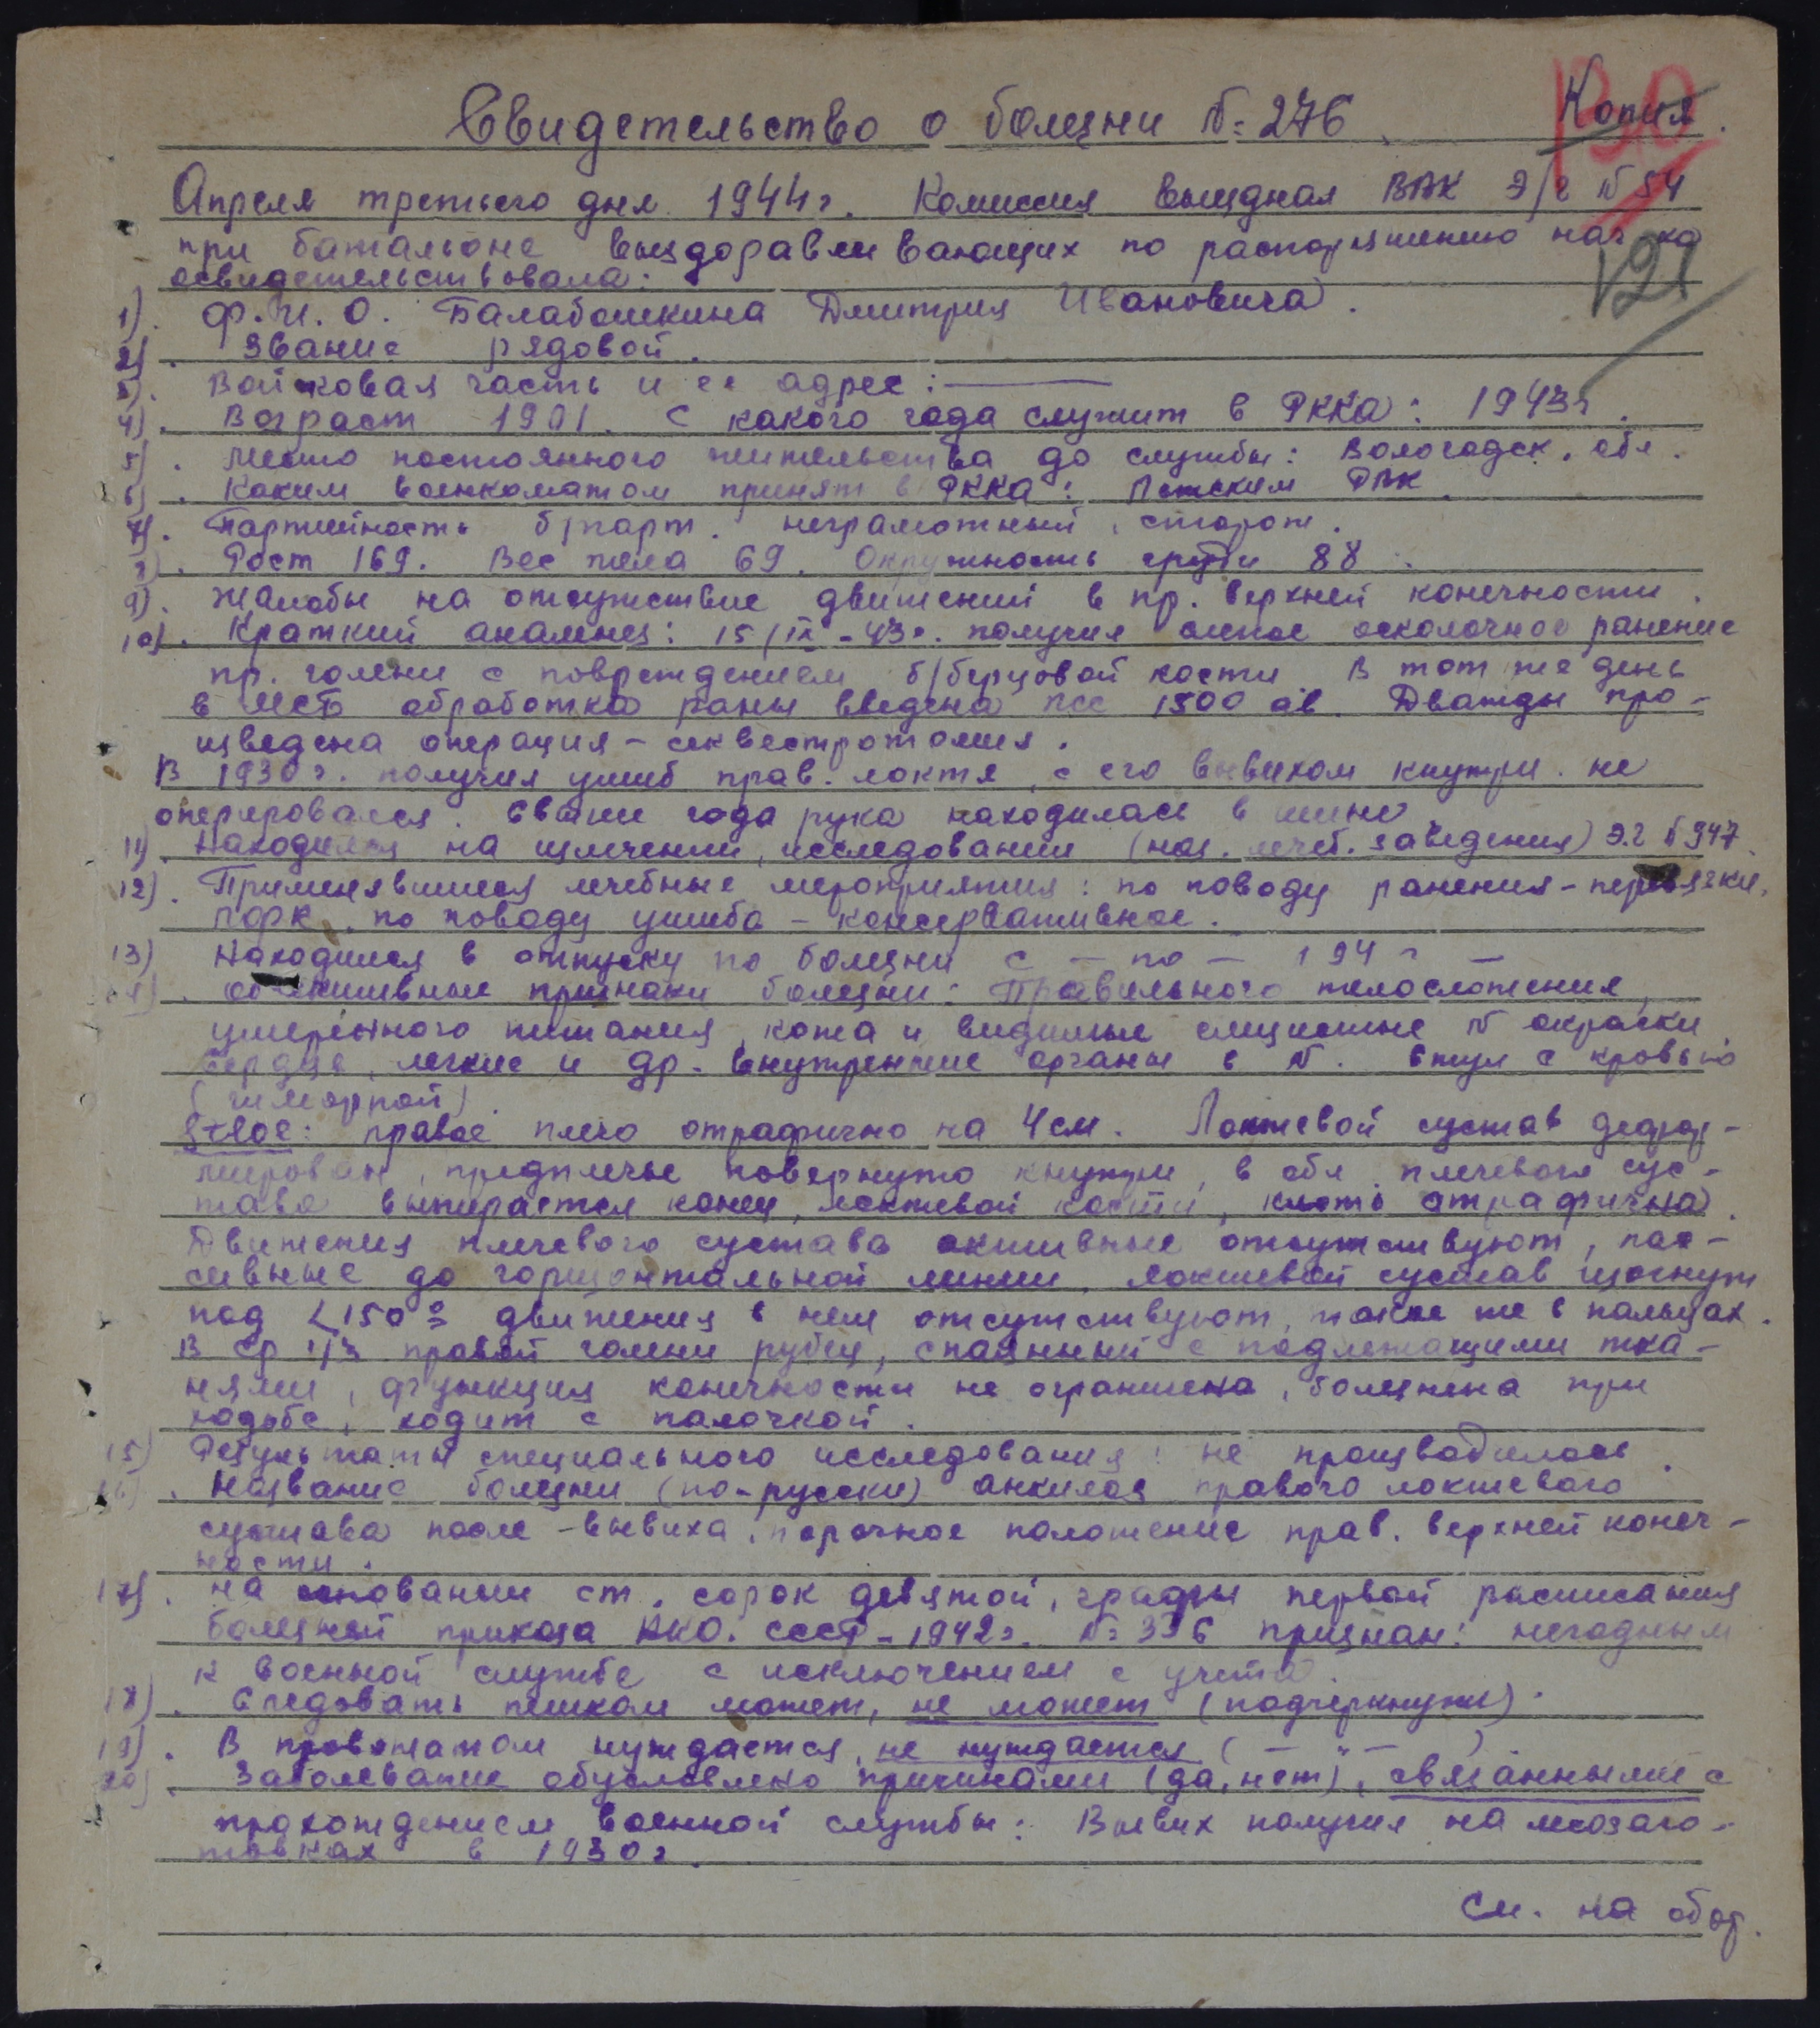 Копия.
Свидетельство о болезни №276.
Апреля третьего дня 1944г. Комиссия выездная ВВК Э/г №54
при батальоне выздоравливающих по распоряжению нач-ка
освидетельствовала:
121
1). Ф.И.О. Балабошкина Дмитрия Ивановича.
2). Звание рядовой.
3). Войсковая часть и ее адрес: —
4). Возраст 1901. С какого года служит в РККА: 1943г.
5). Место постоянного жительства до службы: Вологодск. обл.
6). Каким военкоматом принят в РККА: РВК.
7). Партийность б/парт. неграмотный, сторож.
8). Рост 169. Вес тела 69. Окружность груди 88.
9). Жалобы на отсутствие движений в пр. верхней конечности.
10). Краткий анамнез: 15/IX-43г. получил слепое осколочное ранение
пр. голени с повреждением б/берцовой кости. В тот же день
в МСБ обработка раны введена ПСС 1500 ав. Дважды про-
изведена операция - секвестротомия.
В 1930г. получил ушиб прав. локтя, с его вывихом кнутри. не
оперировался. Свыше года рука находилась в шине
11). Находился на излечении, исследовании (наз. лечеб. заведения) Э.г №947.
12). Применявшиеся лечебные мероприятия: по поводу ранения - перевязки,
по поводу ушиба - консервативное.
13) Находился в отпуску по болезни с — по — 194 г —
14). Объективные признаки болезни: Правильного телосложения,
умеренного питания, кожа и видимые слизистые N окраски
Сердце, легкие и др. внутренние органы в N. Стул с кровью
(геморрой).
St. loc: правое плечо отрафично на 4см. Локтевой сустав дефор-
мирован, предплечье повернуто кнутри, в обл. плечевого сус-
тава выпирается конец локтевой кости, кисть атрафична.
Движения плечевого сустава активные отсутствуют, пас-
сивные до горизонтальной линии. Локтевой сустав изогнут
под <150° движения в нем отсутствуют, также же в пальцах.
В ср 1/3 правой голени рубец, спаянный с подлежащими тка-
нями, функция конечности не ограничена, болезнена при
ходьбе, ходит с палочкой.
15) Результаты специального исследования: не производилось.
16). Название болезни (по-русски) анкилоз правого локтевого
сустава после - вывиха, порочное положение прав. верхней конеч-
ности.
17). На основании ст. сорок девятой, графы первой расписания
болезней приказа НКО. СССР - 1942г. №336 признан: негодным
к военной службе с исключением с учета.
18). Следовать пешком может, не может (подчеркнуть).
19). В провожатом нуждается, не нуждается ( — " — )
20). Заболевание обусловлено причинами (да, нет), связанными с
прохождением военной службы: Вывих получил на лесозаго-
товках в 1930г.
См. на обор.